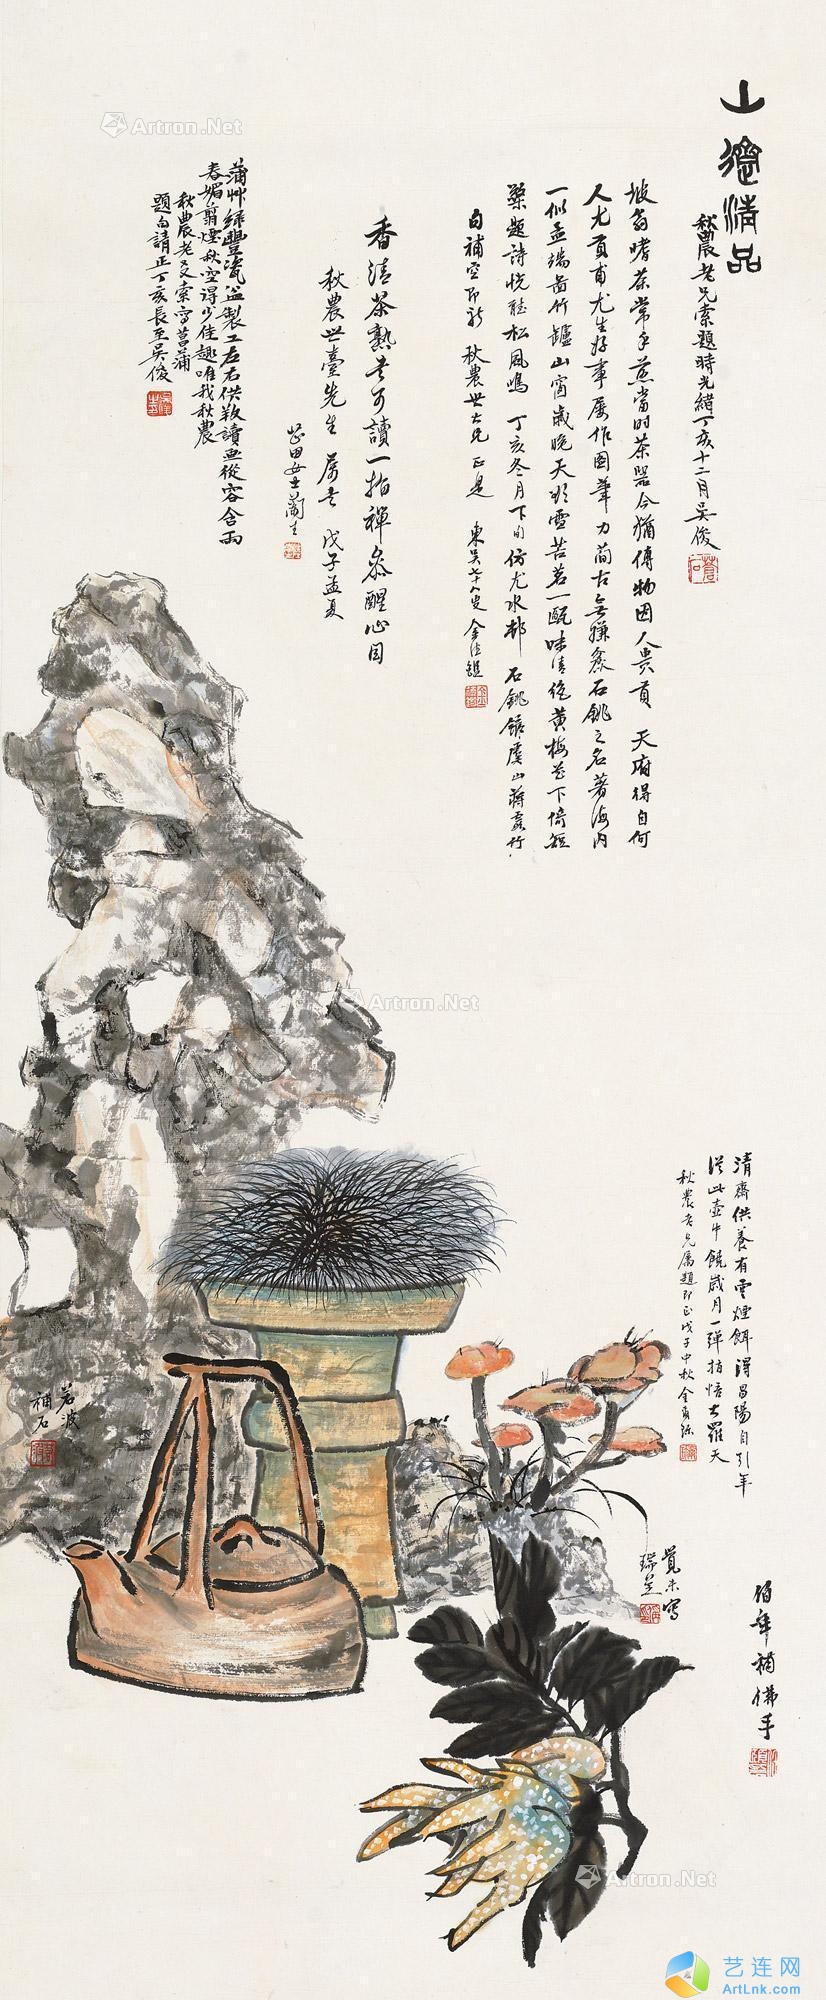 山遊清品
秋農老兄索題時光緒丁亥十二月吳俊
坡翁嗜茶常手煮當時茶器今猶傳物因人異貢天府得自何
人尤貢甫尤生好事屢作圖筆力簡古無嫌麤石銚之名著海內
一似孟端畫竹罏山窗歲晚天欲雪苦茗一甌味清絕黃梅花下倚短
藜題詩恍聽松風鳴丁亥冬月下旬仿尤水邨石銚餘虞山蔣
句補空即祈秋農世大兄正是東吳七十八叟金
香清茶熟書可讀一指禪參醒心目
秋農世臺先生屬書戊子孟夏
芝田女士蘭生
蒲艸綠豐瓷盆製工左右供教讀畫從容含雨
春媚翦煙秋空得少佳趣唯我秋農
秋農老友索寫菖蒲
題句請正丁亥長至吳俊
清齋供養有雲煙餌得昌陽自引年
從此壺中饒歲月一彈指悟大羅天
秋農老兄屬題即正戊子中秋金
若波
補石
覺未寫
瑞芝
伯年補佛手
Artron.Net
Artron.Net
Artron.Net
Artron.Net
艺连网
ArtLnk.com